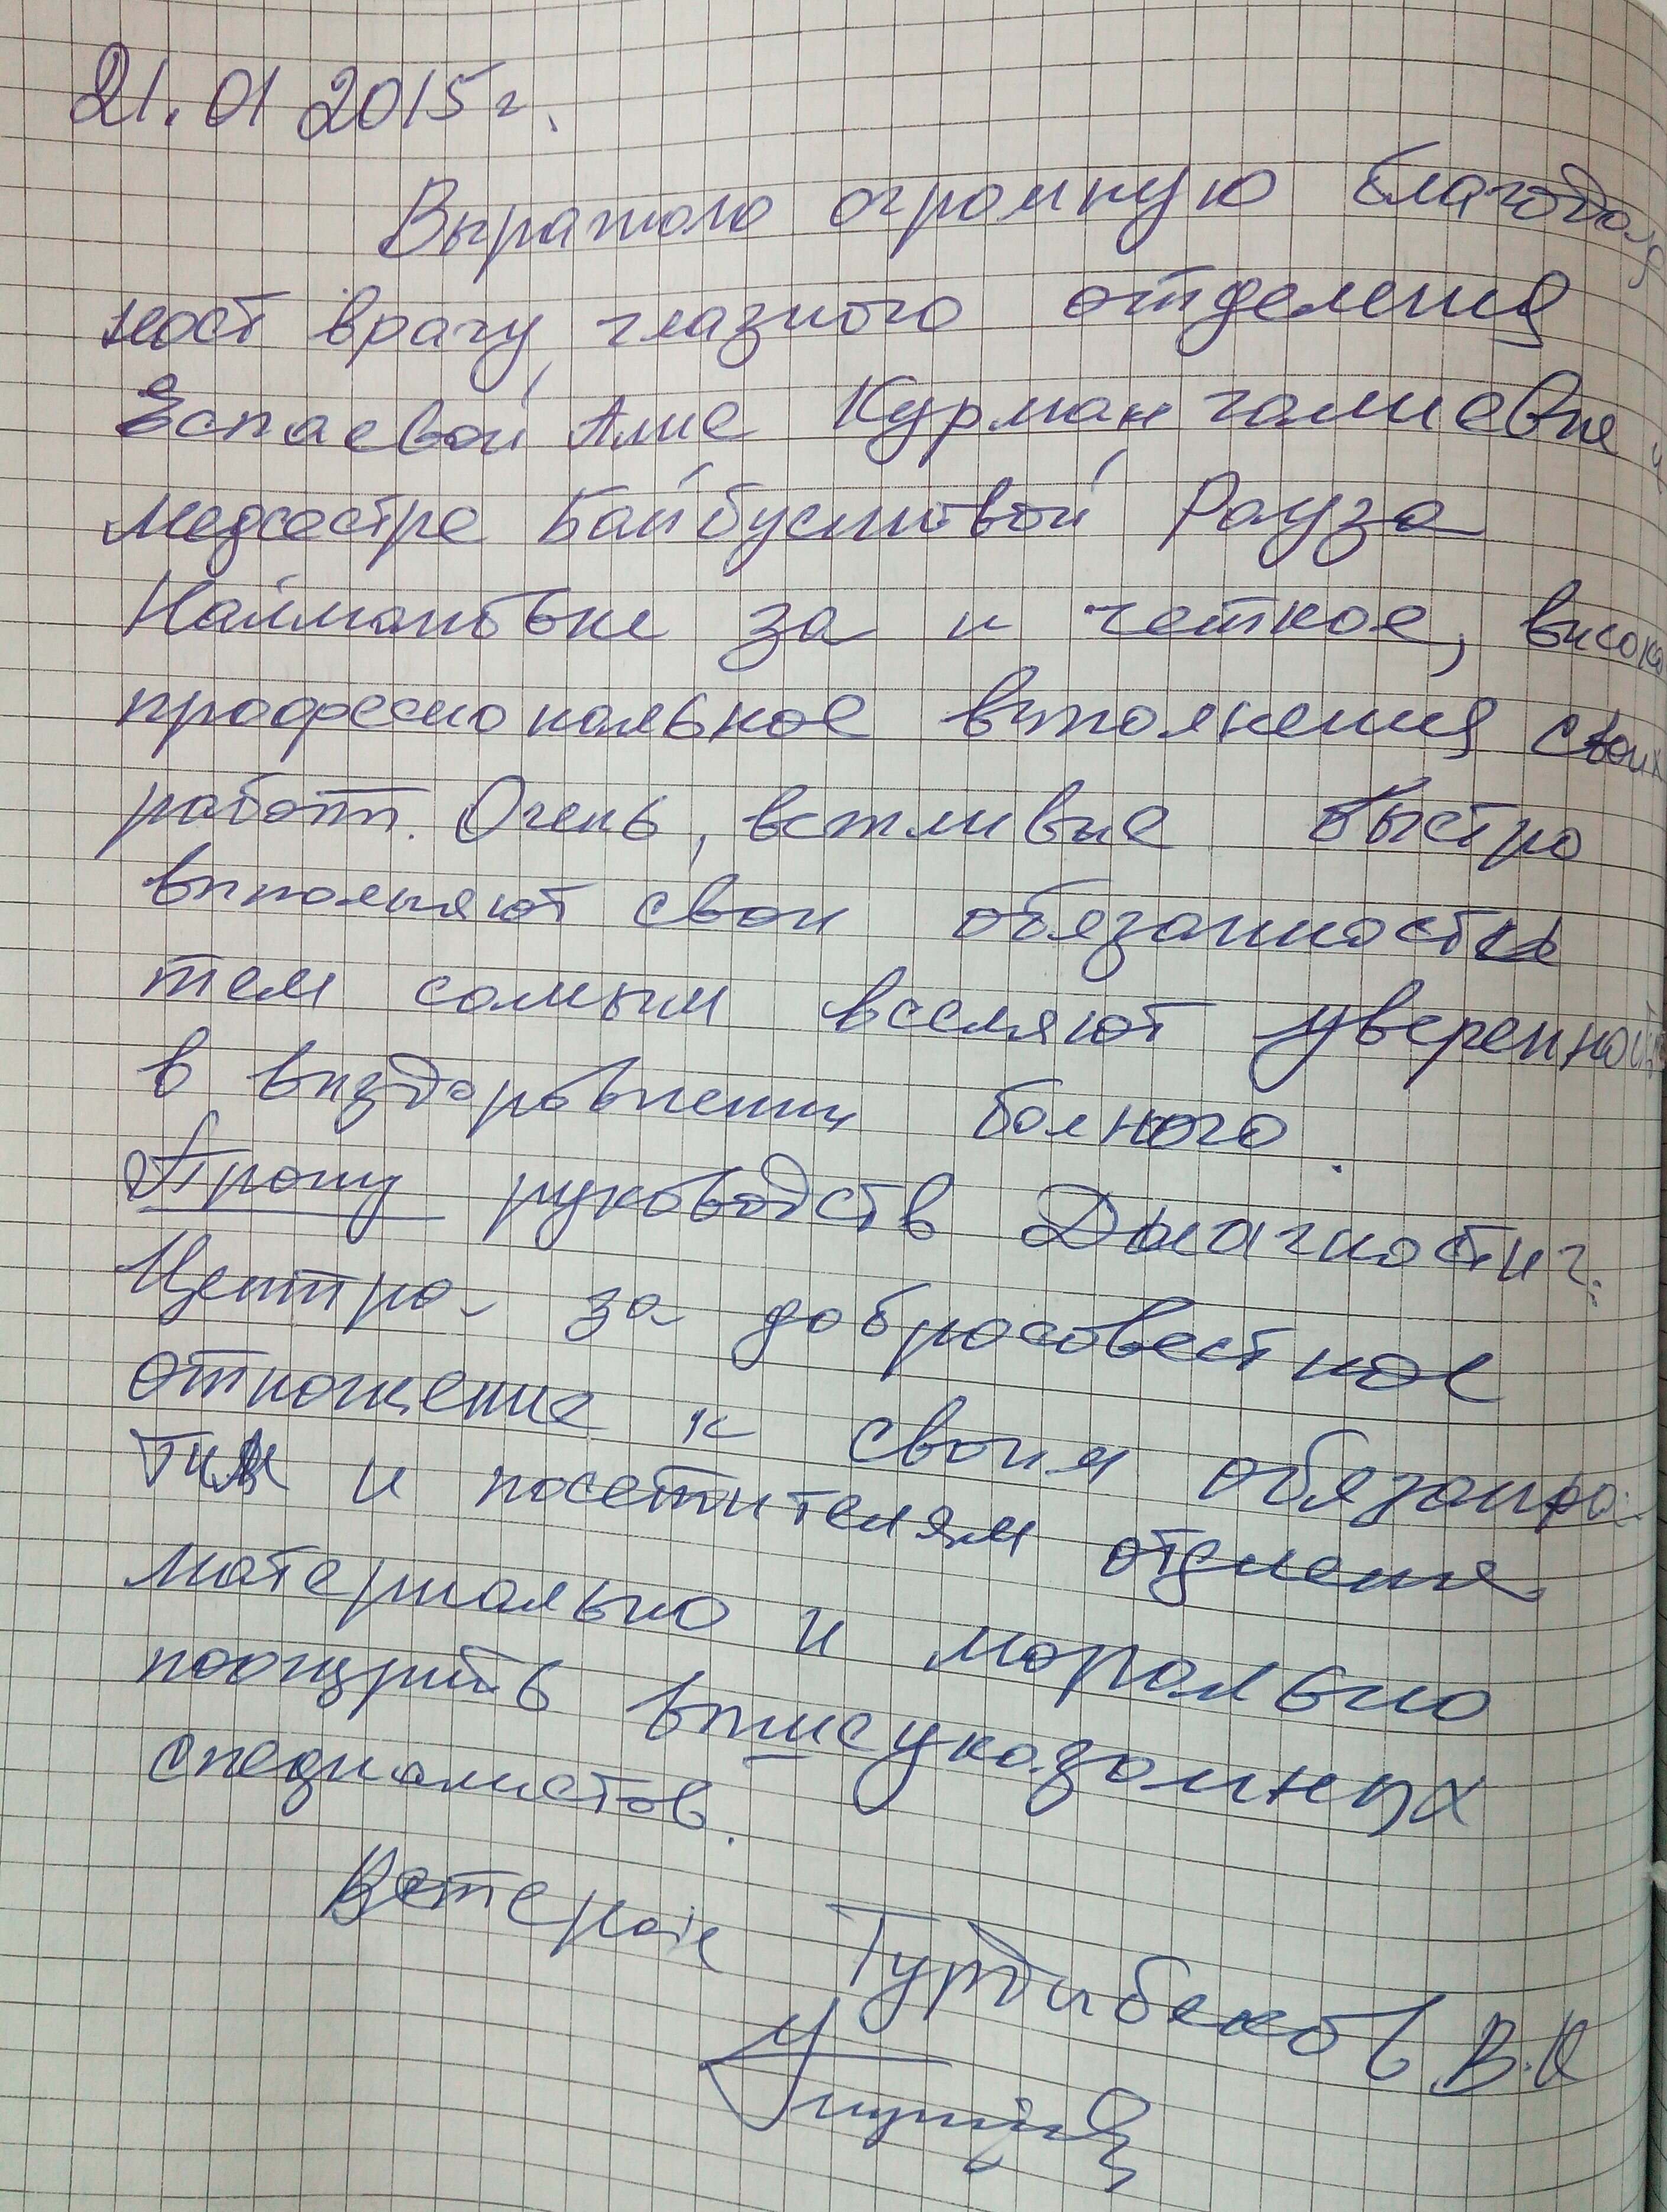 21.01 2015г.
Выражаю огромную благодар
ност врачу, глазного отделения
Еспаевой Алие Курмангалиевне и
медсестре Байбусиновой Рауза
Наймановне за и четкое, высоко
профессиональное выполнения своих
работ. Очень, вежливые быстро
выполняют свои обязанности
тем самым вселяют уверенност
в выздоровлении болного.
Прошу руководств Диагностич.
Центра за добросовестное
отношение к своим обязанно
тям и посетителям отделения
материально и морально
поощрить вышеуказанных
специалистов.
Ветеран Турдибеков В.К